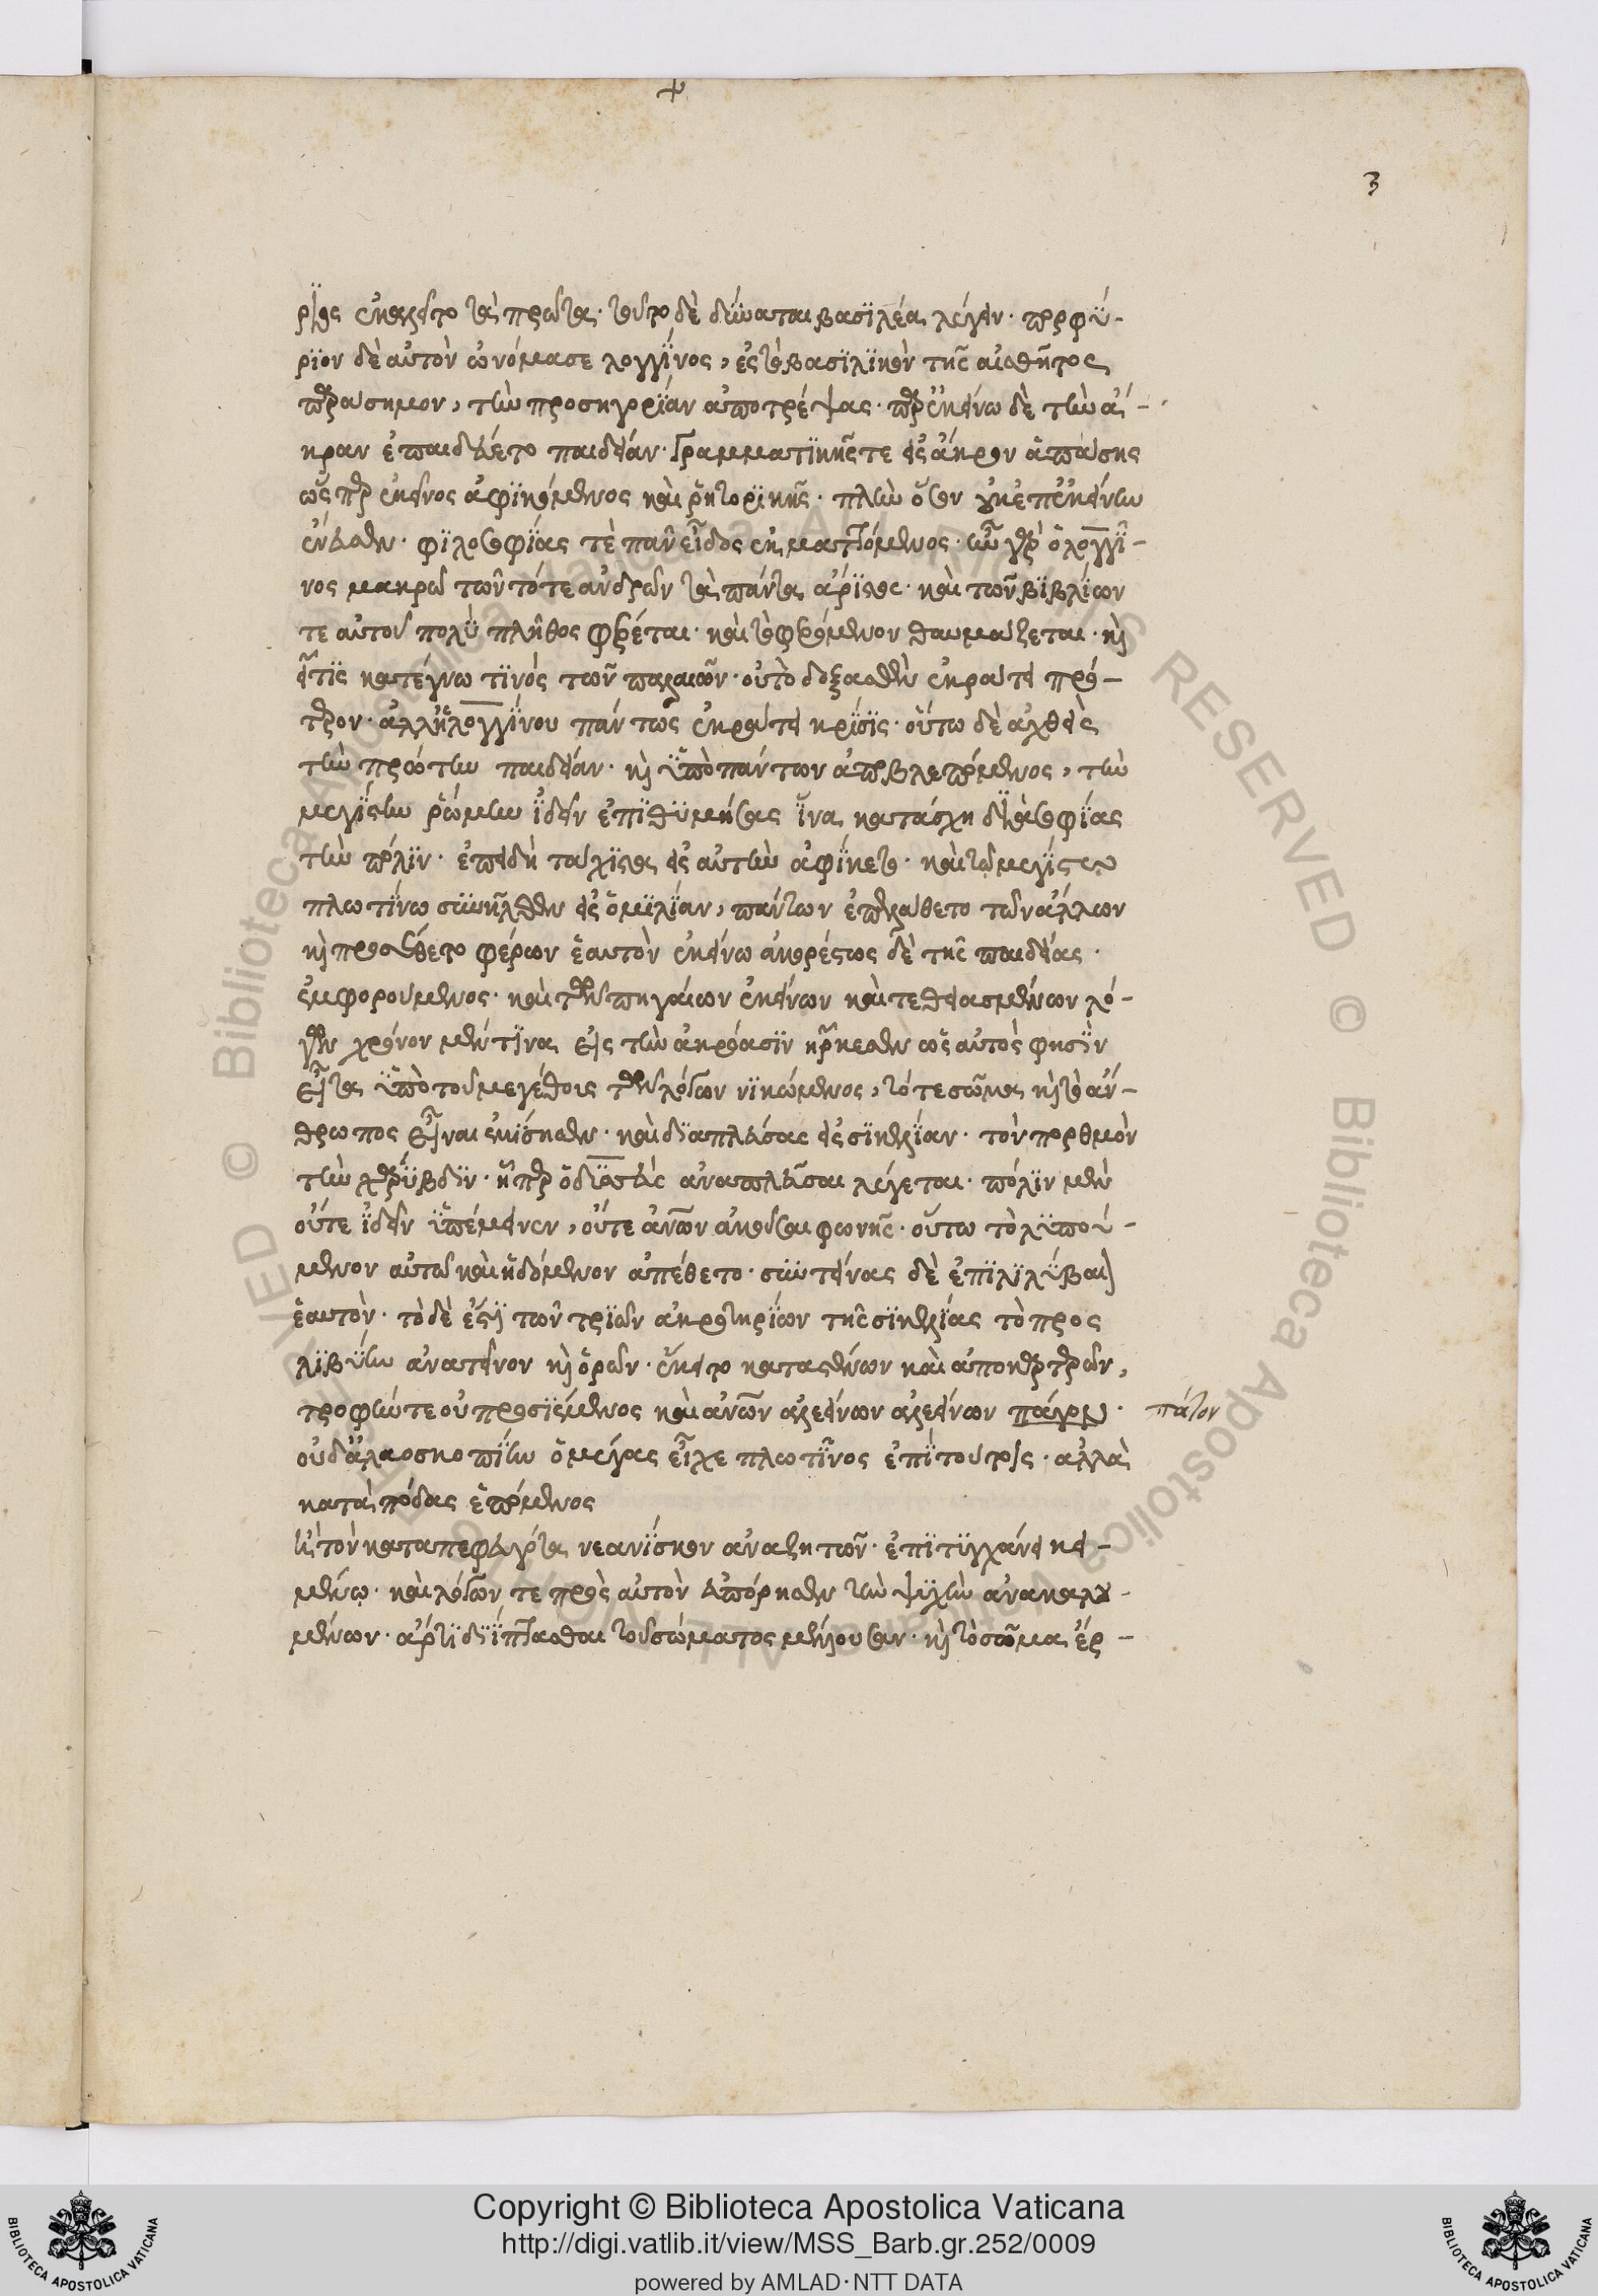 3
ρϊος ἐκαλεῖτο τὰ πρῶτα· τοῦτο δὲ δύναται βασϊλέα λέγειν· πορφύ-
ρϊον δὲ αὐτὸν ὠνόμασε λογγῖνος, ἐς τὸ βασϊλϊκὸν τῆς αἰσθῆτος
παράσημον, τὴν προσηγορίαν ἀποτρέψας· παρ' ἐκείνω δὲ τὴν ἄ-
κραν ἐπαιδεύετο παιδείαν· γραμματϊκῆς τε εἰς ἄκρον ἁπάσης
ὥσπερ ἐκεῖνος ἀφϊκόμενος καὶ ῥητορϊκῆς· πλὴν ὅσον οὐκ ἐπ' ἐκείνην
ἔνευσεν· φϊλοσοφίας τὲ πᾶν εἶδος ἐκματτόμενος· ἦν γὰρ ὁ λογγῖ-
νος μακρῶ τῶν τότε ἀνδρῶν τὰ πάντα ἄριστος· καὶ τῶν βϊβλίων
τε αὐτοῦ πολὺ πλῆθος φέρεται· καὶ τὸ φερόμενον θαυμάζεται· καὶ
εἴ τϊς κατέγνω τϊνὸς τῶν παλαιῶν· οὐ τὸ δοξασθὲν ἐκράτει πρό-
τερον· ἀλλ' ἡ λογγίνου πάντως ἐκράτει κρίσϊς· οὕτω δὲ ἀχθεὶς
τὴν πρώτην παιδείαν· καὶ ὑπὸ πάντων ἀποβλεπόμενος, τὴν
μεγίστην ῥώμην ἰδεῖν ἐπϊθυμήσας ἵνα κατάσχη διὰ σοφίας
τὴν πόλιν· ἐπειδὴ τάχιστα εἰς αὐτὴν ἀφίκετο· καὶ τῶ μεγίστω
πλωτίνω συνῆλθεν εἰς ὁμϊλίαν, πάντων ἐπελάθετο τῶν ἄλλων
καὶ προσέθετο φέρων ἑαυτὸν ἐκείνω ἀκορέστως δὲ τῆς παιδείας·
ἐμφορούμενος· καὶ τῶν πηγαίων ἐκείνων καὶ τεθειασμένων λό-
γων χρόνον μέν τϊνα εἰς τὴν ἀκρόασιν ἤρκεσεν ὡς αὐτός φησϊν
εἶτα ὑπὸ τοῦ μεγέθοις τῶν λόγων νϊκώμενος, τό τε σῶμα καὶ τὸ ἄν-
θρωπος εἶναι ἐμίσησεν· καὶ διαπλεύσας εἰς σϊκελίαν· τὸν πορθμὸν
τὴν χάρυβδϊν· ἧπερ ὀδυσσεὺς ἀναπλεῦσαι λέγεται· πόλϊν μὲν
οὔτε ἰδεῖν ὑπέμεινεν, οὔτε ἀνων ἀκοῦσαι φωνῆς· οὕτω τὸ λυπού-
μενον αὐτῶ καὶ ἡδόμενον ἀπέθετο· συντείνας δὲ ἐπϊ λϊλύβαι
ἑαυτόν· τὸ δὲ ἐστϊ τῶν τρϊῶν ἀκρωτηρίων τῆς σϊκελίας τὸ πρὸς
λϊβύην ἀνατεῖνον καὶ ὁρῶν· ἔκειτο καταστένων καὶ ἀποκαρτερῶν,
τροφήν τε οὐ προσϊέμενος καὶ ἀνων ἀλεείνων ἀλεείνων πάγον· πάτον
οὐδ' ἀλαοσκοπίην ὁ μέγας εἶχε πλωτῖνος ἐπὶ τούτοις· ἀλλὰ
κατὰ πόδας ἑπόμενος
ἢ τὸν καταπεφευγότα νεανίσκον ἀναζητῶν· ἐπϊτυγχάνει κει-
μένω· καὶ λόγων τε πρὸς αὐτὸν εὐπόρησεν τὴν ψυχὴν ἀνακαλου-
μένων· ἄρτϊ διΐπτασθαι τοῦ σώματος μέλλουσαν· καὶ τὸ σῶμα ἔρ-
Copyright © Biblioteca Apostolica Vaticana
http://digi.vatlib.it/view/MSS_Barb.gr.252/0009
powered by AMLAD·NTT DATA